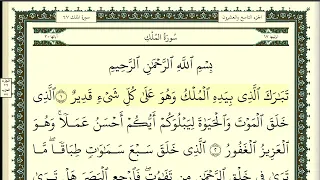 الجزء التاسع والعشرون
سورة الملك ٦٧
سُورَةُ المُلْكِ
بِسْمِ اللَّهِ الرَّحْمَٰنِ الرَّحِيمِ
تَبَٰرَكَ الَّذِي بِيَدِهِ الْمُلْكُ وَهُوَ عَلَىٰ كُلِّ شَيْءٍ قَدِيرٌ ۝١ الَّذِي
خَلَقَ الْمَوْتَ وَالْحَيَوٰةَ لِيَبْلُوَكُمْ أَيُّكُمْ أَحْسَنُ عَمَلًا ۚ وَهُوَ
الْعَزِيزُ الْغَفُورُ ۝٢ الَّذِي خَلَقَ سَبْعَ سَمَٰوَٰتٍ طِبَاقًا ۖ مَّا
تَرَىٰ فِي خَلْقِ الرَّحْمَٰنِ مِن تَفَٰوُتٍ ۖ فَارْجِعِ الْبَصَرَ هَلْ تَرَىٰ